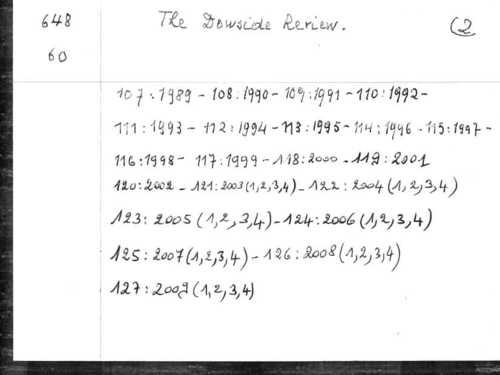 648 The Downside Review. (2
60
107:1989 - 108:1990 - 109:1991 - 110:1992 -
111:1993 - 112:1994 - 113:1995 - 114:1996 - 115:1997 -
116:1998 - 117:1999 - 118:2000 - 119:2001
120:2002 - 121:2003 (1,2,3,4) - 122:2004 (1,2,3,4)
123:2005 (1,2,3,4) - 124:2006 (1,2,3,4)
125:2007 (1,2,3,4) - 126:2008 (1,2,3,4)
127:2009 (1,2,3,4)